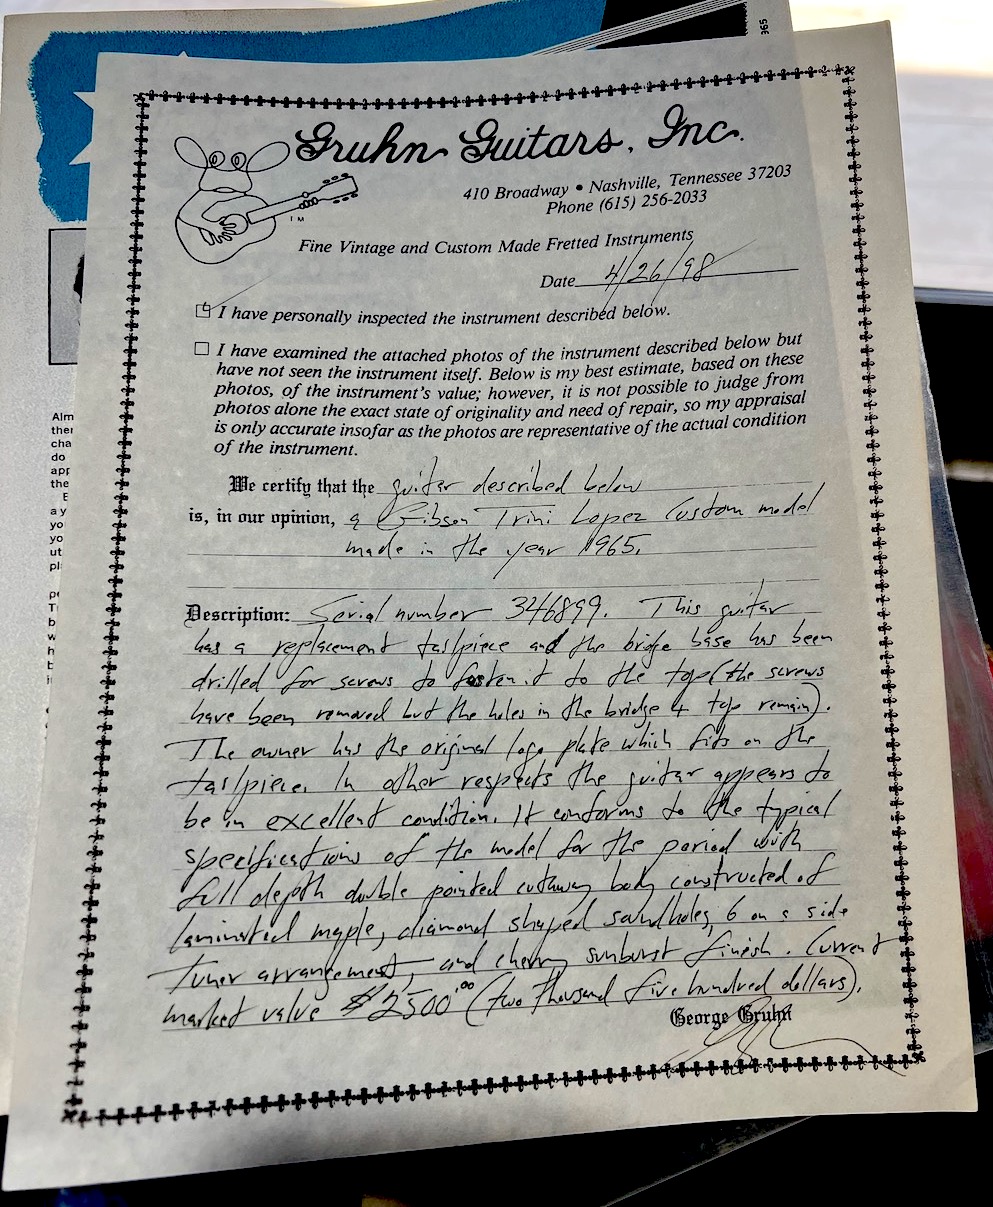 365
Gruhn Guitars, Inc.
410 Broadway • Nashville, Tennessee 37203
Phone (615) 256-2033
TM
Fine Vintage and Custom Made Fretted Instruments
Date 4/26/98
I have personally inspected the instrument described below.
I have examined the attached photos of the instrument described below but
have not seen the instrument itself. Below is my best estimate, based on these
photos, of the instrument's value; however, it is not possible to judge from
photos alone the exact state of originality and need of repair, so my appraisal
is only accurate insofar as the photos are representative of the actual condition
of the instrument.
We certify that the guitar described below
is, in our opinion, a Gibson Trini Lopez Custom model
made in the year 1965.
Description: Serial number 346899. This guitar
has a replacement tailpiece and the bridge base has been
drilled for screws to fasten it to the top (the screws
have been removed but the holes in the bridge + top remain).
The owner has the original logo plate which fits on the
tailpiece. In other respects the guitar appears to
be in excellent condition. It conforms to the typical
specifications of the model for the period with
full depth double pointed cutaway body constructed of
laminated maple, diamond shaped soundholes, 6 on a side
tuner arrangement, and cherry sunburst finish. Current
market value $2500.00 (two thousand five hundred dollars).
George Gruhn
Alm
ther
cha
do
app
the
E
a y
yo
yo
ut
pl